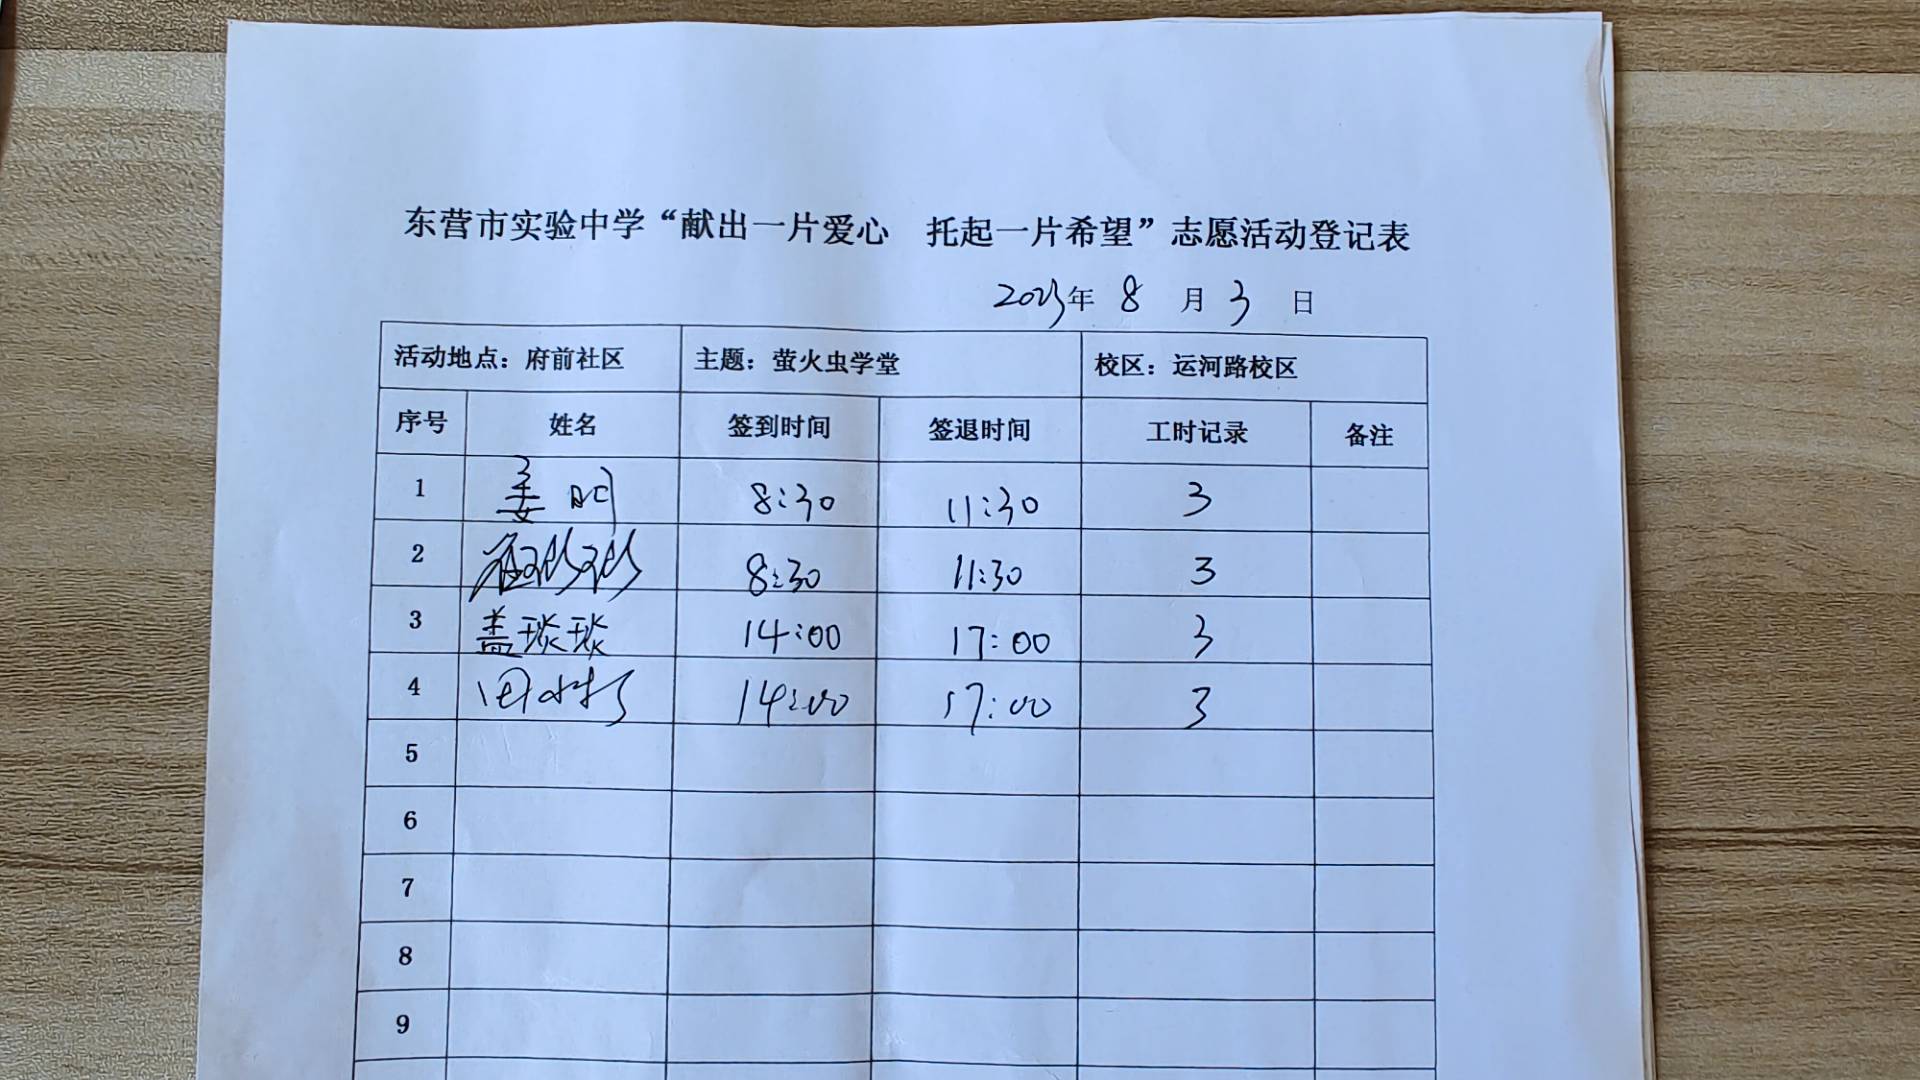 东营市实验中学“献出一片爱心 托起一片希望”志愿活动登记表
2023年 8 月 3 日
活动地点：府前社区 主题：萤火虫学堂 校区：运河路校区
序号 姓名 签到时间 签退时间 工时记录 备注
1 姜明 8:30 11:30 3
2 8:30 11:30 3
3 盖琰琰 14:00 17:00 3
4 田 14:00 17:00 3
5
6
7
8
9